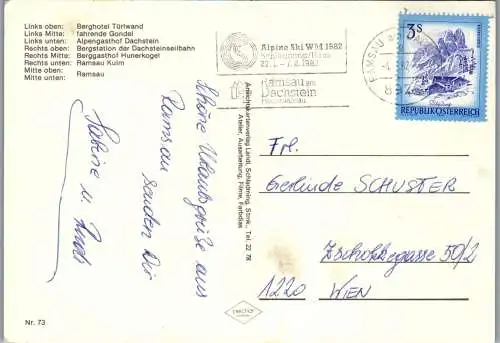 Links oben: Berghotel Türlwand
Links Mitte: fahrende Gondel
Links unten: Alpengasthof Dachstein
Rechts oben: Bergstation der Dachsteinseilbahn
Rechts Mitte: Berggasthof Hunerkogel
Rechts unten: Ramsau Kulm
Mitte oben:
Mitte unten: Ramsau
Schöne Urlaubsgrüße aus
Ramsau
senden Dir
Sabine u.
Nr. 73
Ansichtskartenverlag Landl, Schladming, Stmk., Tel. 22 78
Atelier, Ausarbeitung, Filme, Farbdias
Alpine Ski WM 1982
Schladming/Haus
Ramsau am
Dachstein
RAMSAU
3 S
REPUBLIK ÖSTERREICH
Frl.
Gerlinde SCHUSTER
Zschokkegasse 50/2
1220 WIEN